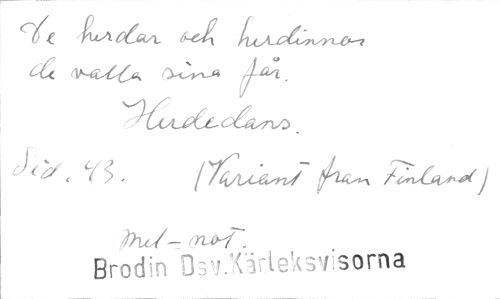 De herdar och herdinnor
de valla sina får.
Herdedans.
Sid. 43. (Variant från Finland)
Mel-not.
Brodin Dsv.Kärleksvisorna